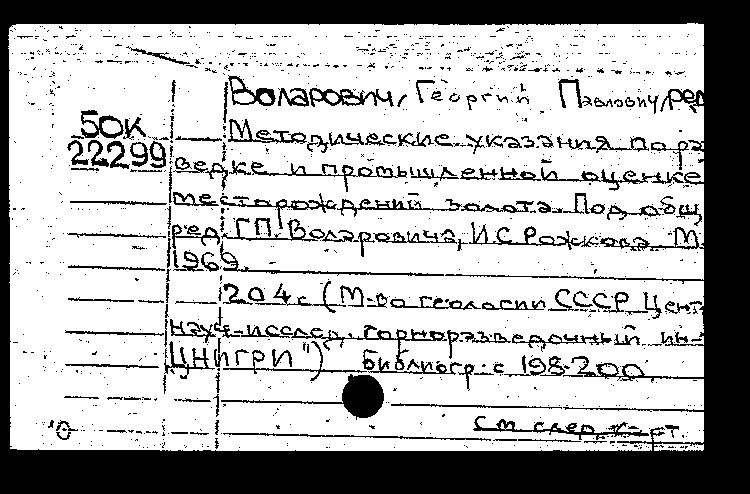 Воларович, Георгий Павлович, ред
50К
Методические указания по раз
22299
ведке и промышленной оценке
месторождений золота. Под общ.
ред. Г.П. Воларовича, И.С. Рожкова. М.
1969.
204 с (М-во геологии СССР Центр
науч.-исслед. горноразведочный ин-т
ЦНИГРИ") Библиогр: с 198-200
См. след. карт.